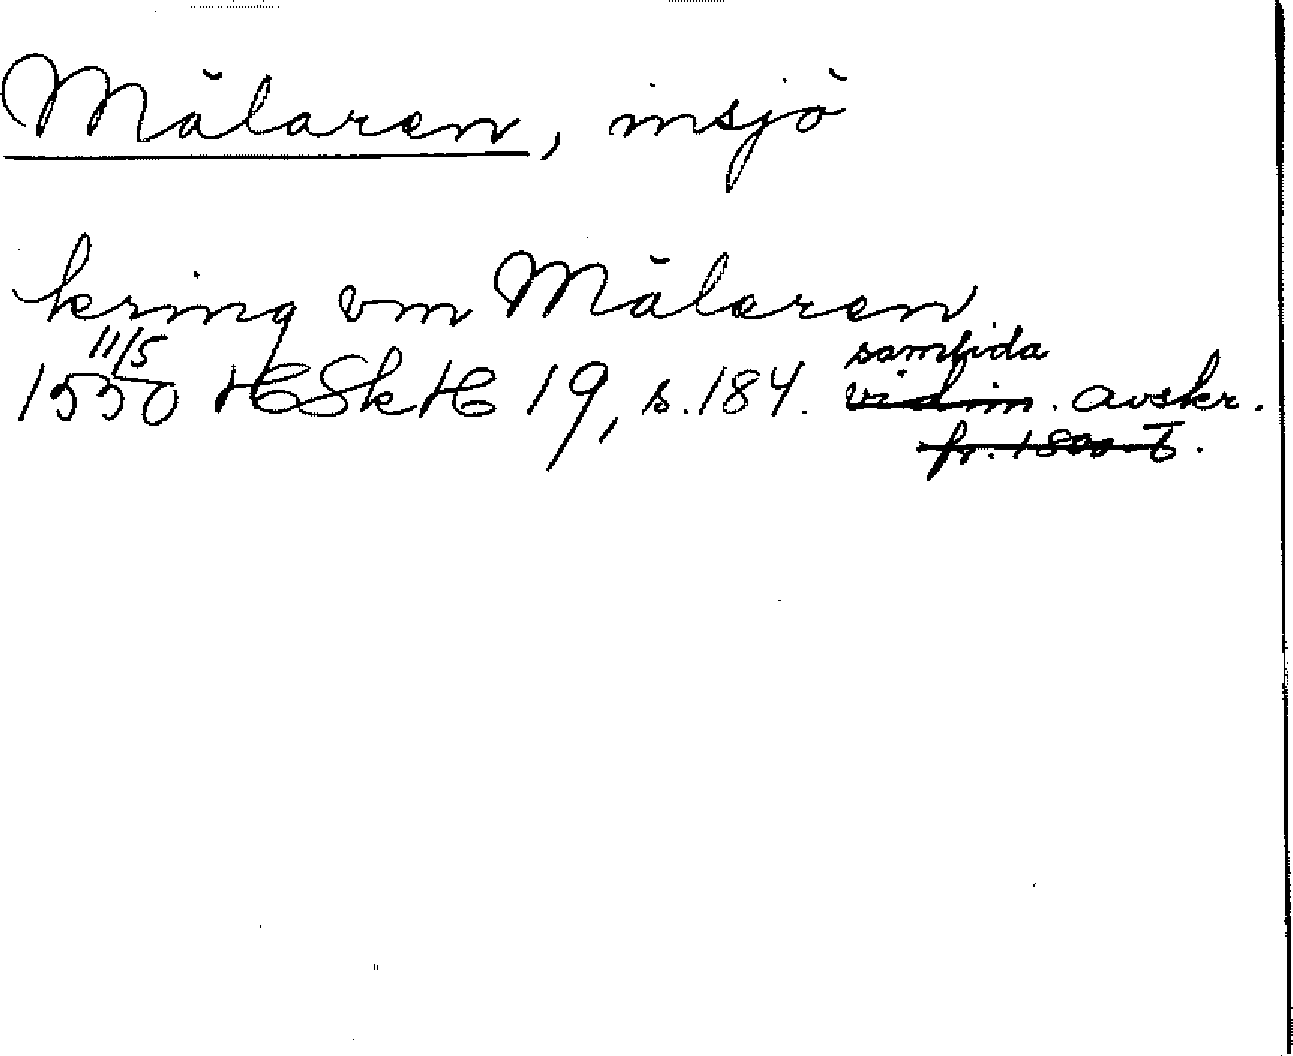 Mälaren, insjö
kring vm Mälaren
11/5 samtida
1550 HSkH 19, s. 184. vidim. avskr.
fr. 1800-t.